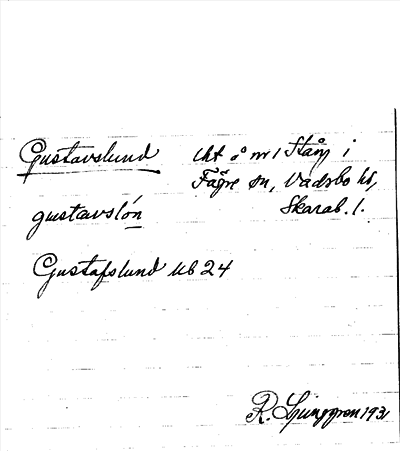 Gustavslund
lht å nr 1 Stång i
Fägre sn, Vadsbo hd,
Skarab. l.
gustavslón
Gustafslund Ub 24
R. Ljunggren 1931